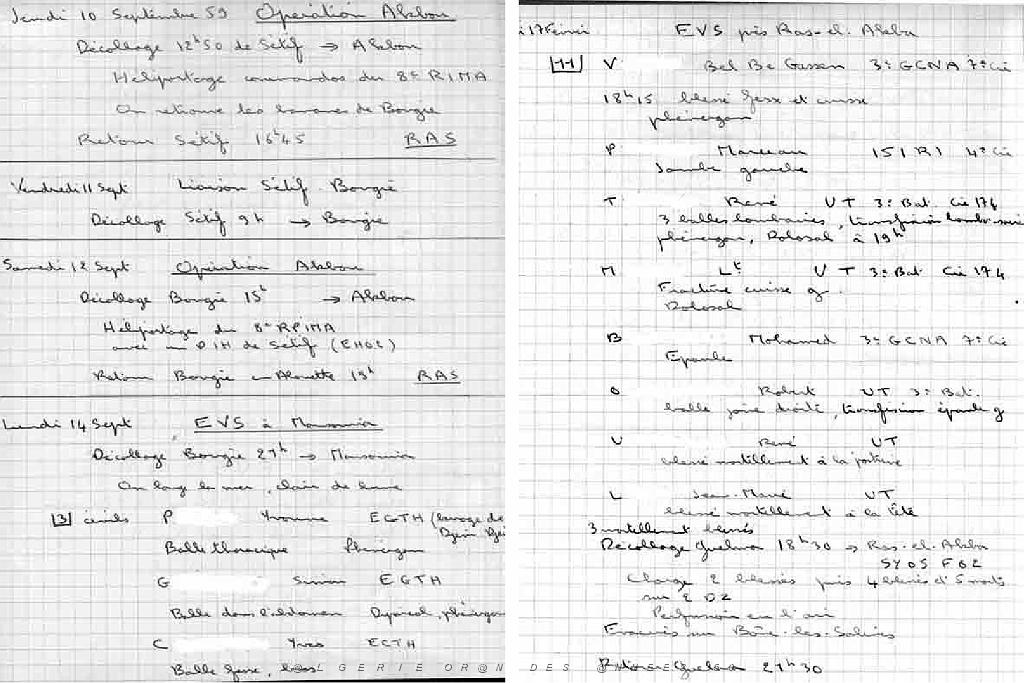 Jeudi 10 Septembre 59 Opération Akbou
Décollage 12h50 de Sétif → Akbou
Héliportage commandos du 8e RIMA
On retrouve les bananes de Bougie
Retour Sétif 16h45 RAS
Vendredi 11 Sept Liaison Sétif - Bougie
Décollage Sétif 9h → Bougie
Samedi 12 Sept Opération Akbou
Décollage Bougie 15h → Akbou
Héliportage du 8e RPIMA
avec un DIH de Sétif (EH02)
Retour Bougie en Alouette 19h RAS
Lundi 14 Sept EVS à Mansouria
Décollage Bougie 21h → Mansouria
On longe la mer, clair de lune
[3] civils P Yvonne EGTH (barrage de
Djen Djen
Balle thoracique Phénergan
G Simon EGTH
Balle dans l'abdomen Dyparcol, phénergan
C Yves EGTH
Balle
17 Février EVS près Ras-el-Akba
[11] V Bel Be Gassen 3e GCNA 7e Cie
18h15 blessé fesse et cuisse
phénergan
P Marceau 151 RI 4e Cie
Jambe gauche
T René UT 3e Bat. Cie 174
3 balles lombaires, transfusion
phénergan, Dolosal à 19h
M Lt UT 3e Bat Cie 174
Fracture cuisse g.
Dolosal
B Mohamed 3e GCNA 7e Cie
Epaule
O Robert UT 3e Bat.
balle joue droite, transfusion épaule g
V René UT
blessé mortellement à la poitrine
L Jean-Marie UT
blessé mortellement à la tête
3 mortellement blessés
Décollage Guelma 18h30 → Ras-el-Akba
SY05 F82
Charge 2 blessés puis 4 blessés et 5 morts
sur E DZ
Perfusion en l'air
Evacués sur Bône-les-Salines
ALGERIE OR@N DES @NNEES
Retour Guelma 21h30